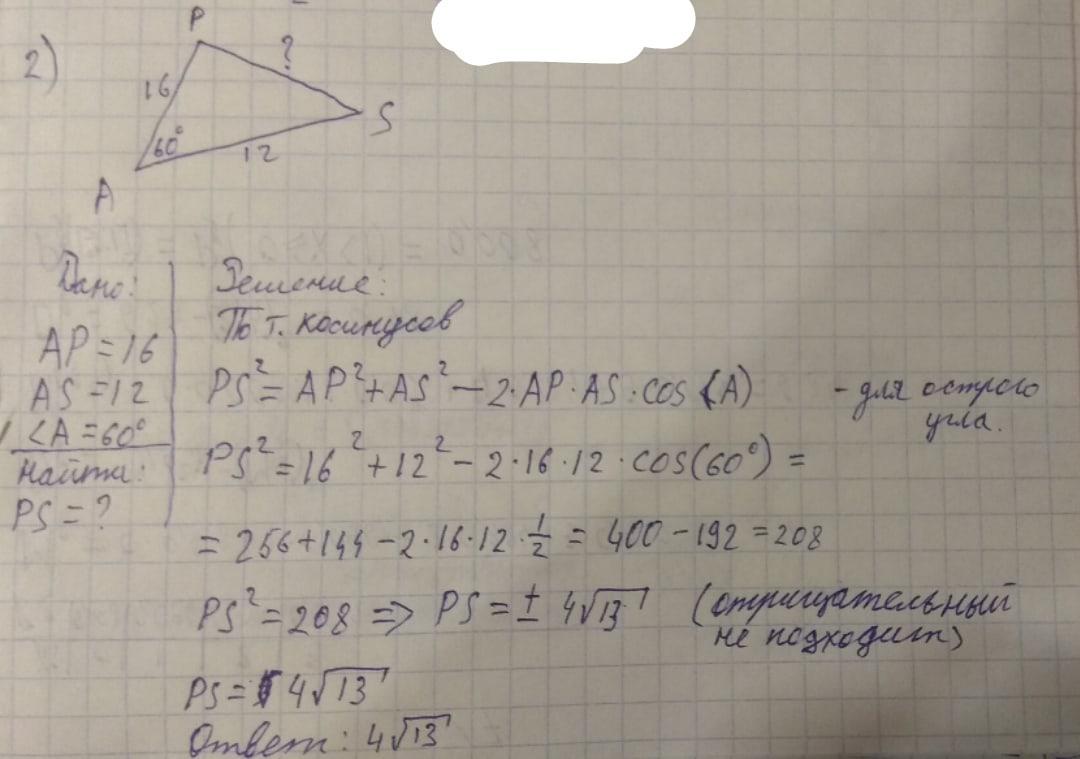 2)
P
16
?
60°
12
S
A
Дано:
AP = 16
AS = 12
∠A = 60°
Найти:
PS = ?
Решение:
По т. косинусов
PS² = AP² + AS² - 2·AP·AS·cos(A) - для острого угла.
PS² = 16² + 12² - 2·16·12·cos(60°) =
= 256 + 144 - 2·16·12·1/2 = 400 - 192 = 208
PS² = 208 => PS = ± 4√13 (отрицательный не подходит)
PS = 4√13
Ответ: 4√13